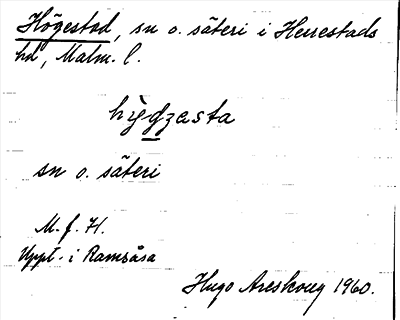 Högestad, sn o. säteri i Herrestads
hd, Malm. l.
sn o. säteri
M. f. H.
Uppt. i Ramsåsa
Hugo Areskoug 1960.